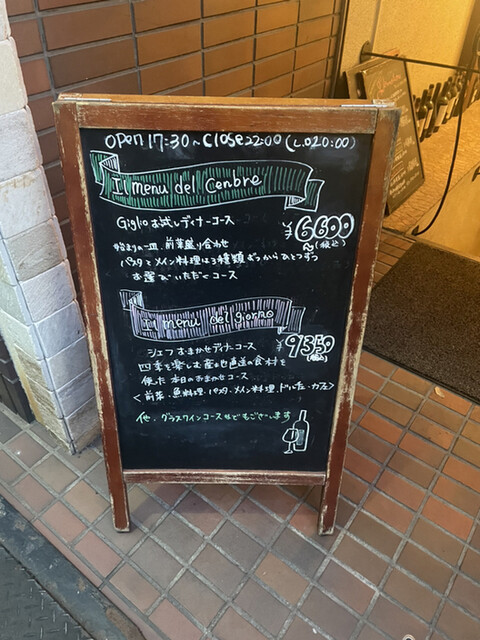 open 17:30~Close 22:00 (L.O 20:00)
Il menu del Cenbre
Giglio お試しディナーコース ¥6600~(税込)
始まりの一皿、前菜盛り合わせ
パスタとメイン料理は3種類ずつからひとつずつ
お選びいただくコース
Il menu del giorno
シェフおまかせディナーコース ¥9350(税込)
四季を楽しむ産地直送の食材を
使った本日のおまかせコース
<前菜・魚料理・パスタ・メイン料理・ドルチェ・カフェ>
他、グラスワインコースなどもございます